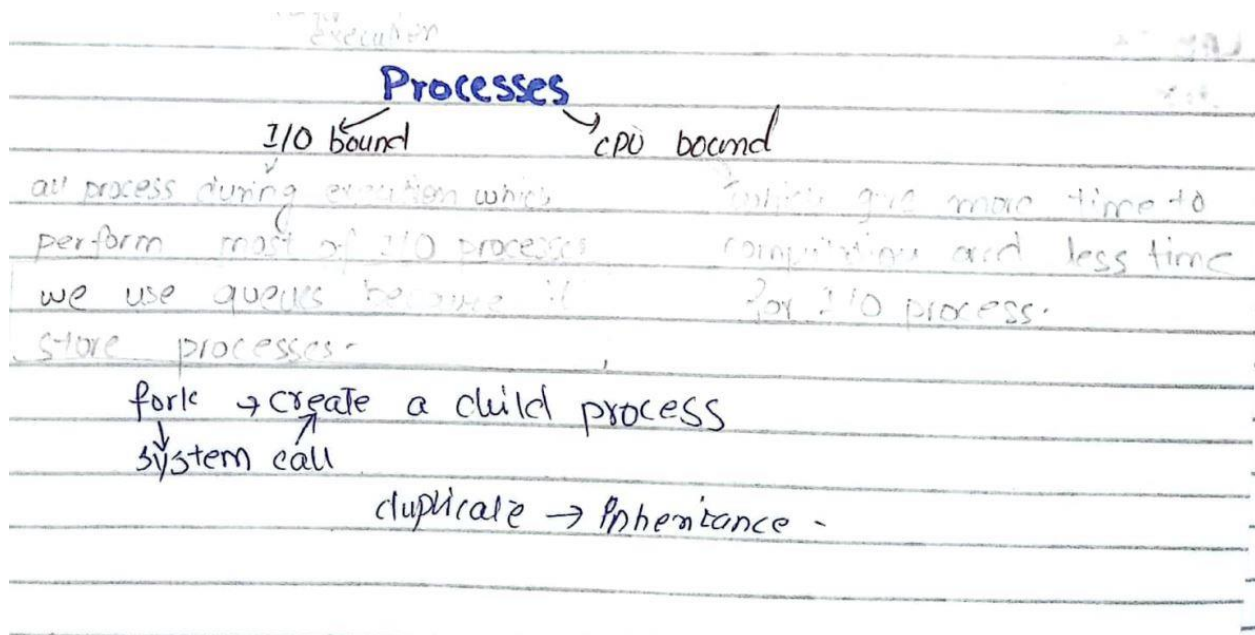 execution
Processes
I/O bound
cpu bound
all process during execution which
perform most of I/O processes
we use queues because it
store processes.
which give more time to
computations and less time
for I/O process.
fork → create a child process
system call
duplicate → Inheritance -